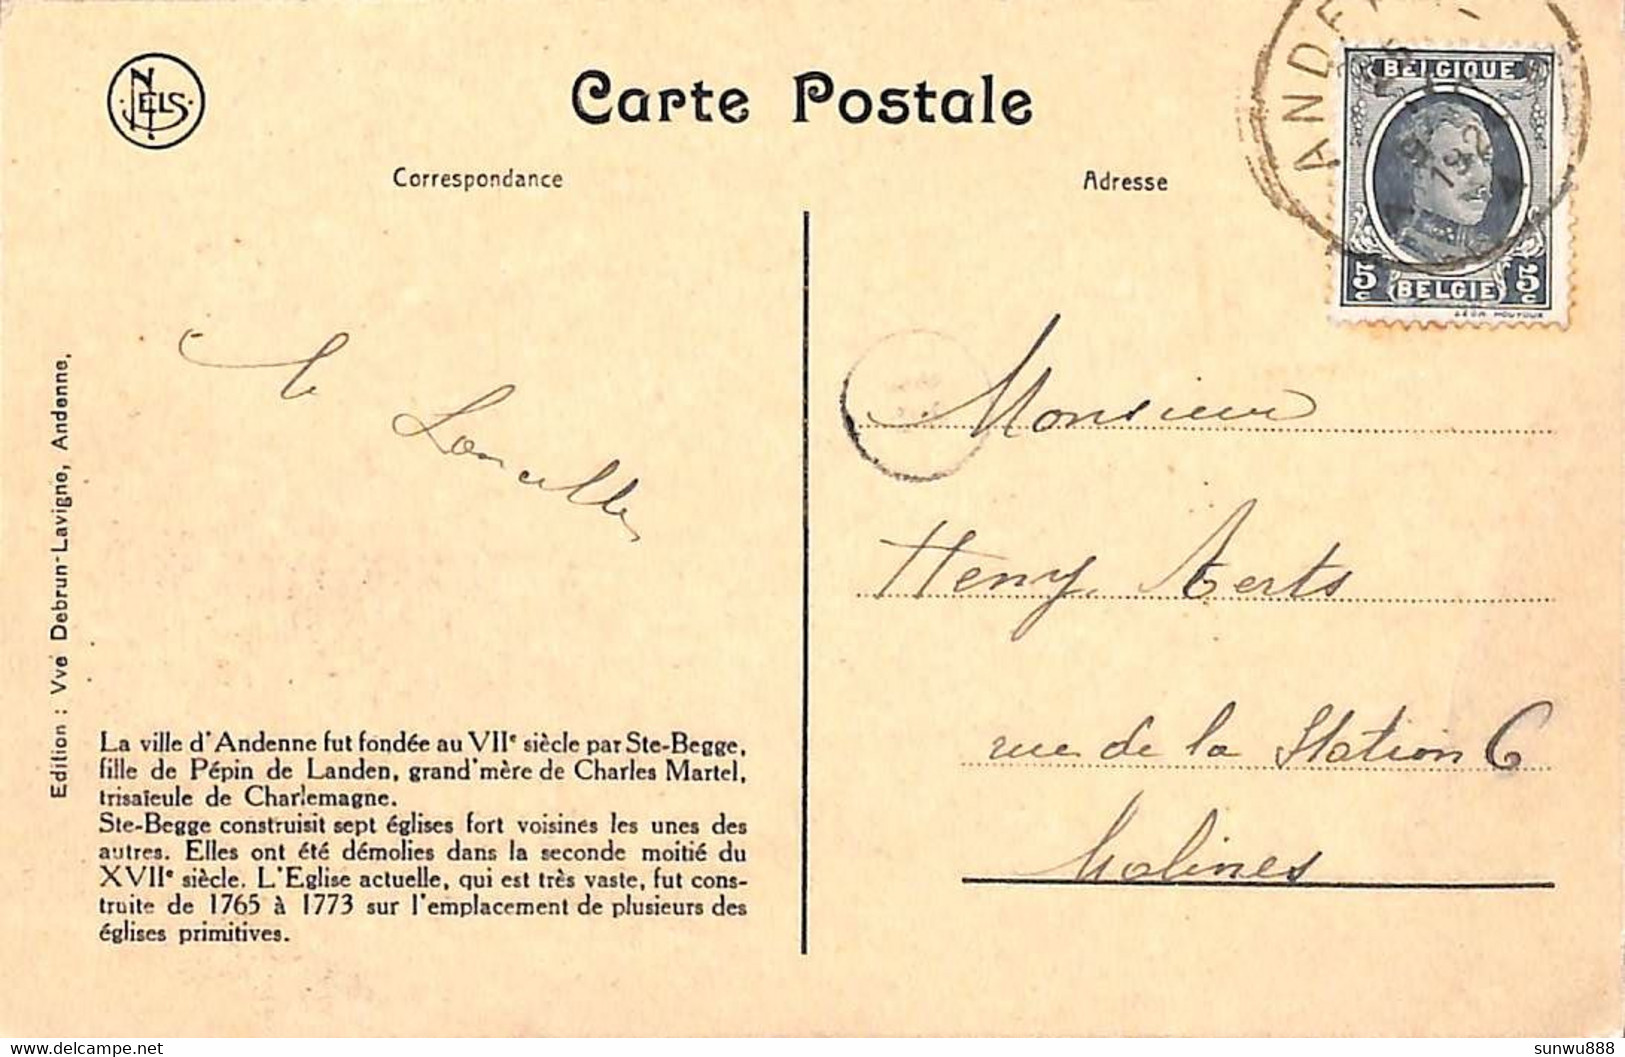 NELS
Carte Postale
Correspondance
Adresse
BELGIQUE
5c BELGIE 5c
LEON HOUYOUX
Monsieur
Heny. Aerts
rue de la Station 6
Malines
Edition : Vve Debrun-Lavigne, Andenne.
La ville d'Andenne fut fondée au VIIe siècle par Ste-Begge,
fille de Pépin de Landen, grand'mère de Charles Martel,
trisaïeule de Charlemagne.
Ste-Begge construisit sept églises fort voisines les unes des
autres. Elles ont été démolies dans la seconde moitié du
XVIIe siècle. L'Eglise actuelle, qui est très vaste, fut cons-
truite de 1765 à 1773 sur l'emplacement de plusieurs des
églises primitives.
delcampe.net
sunwu888